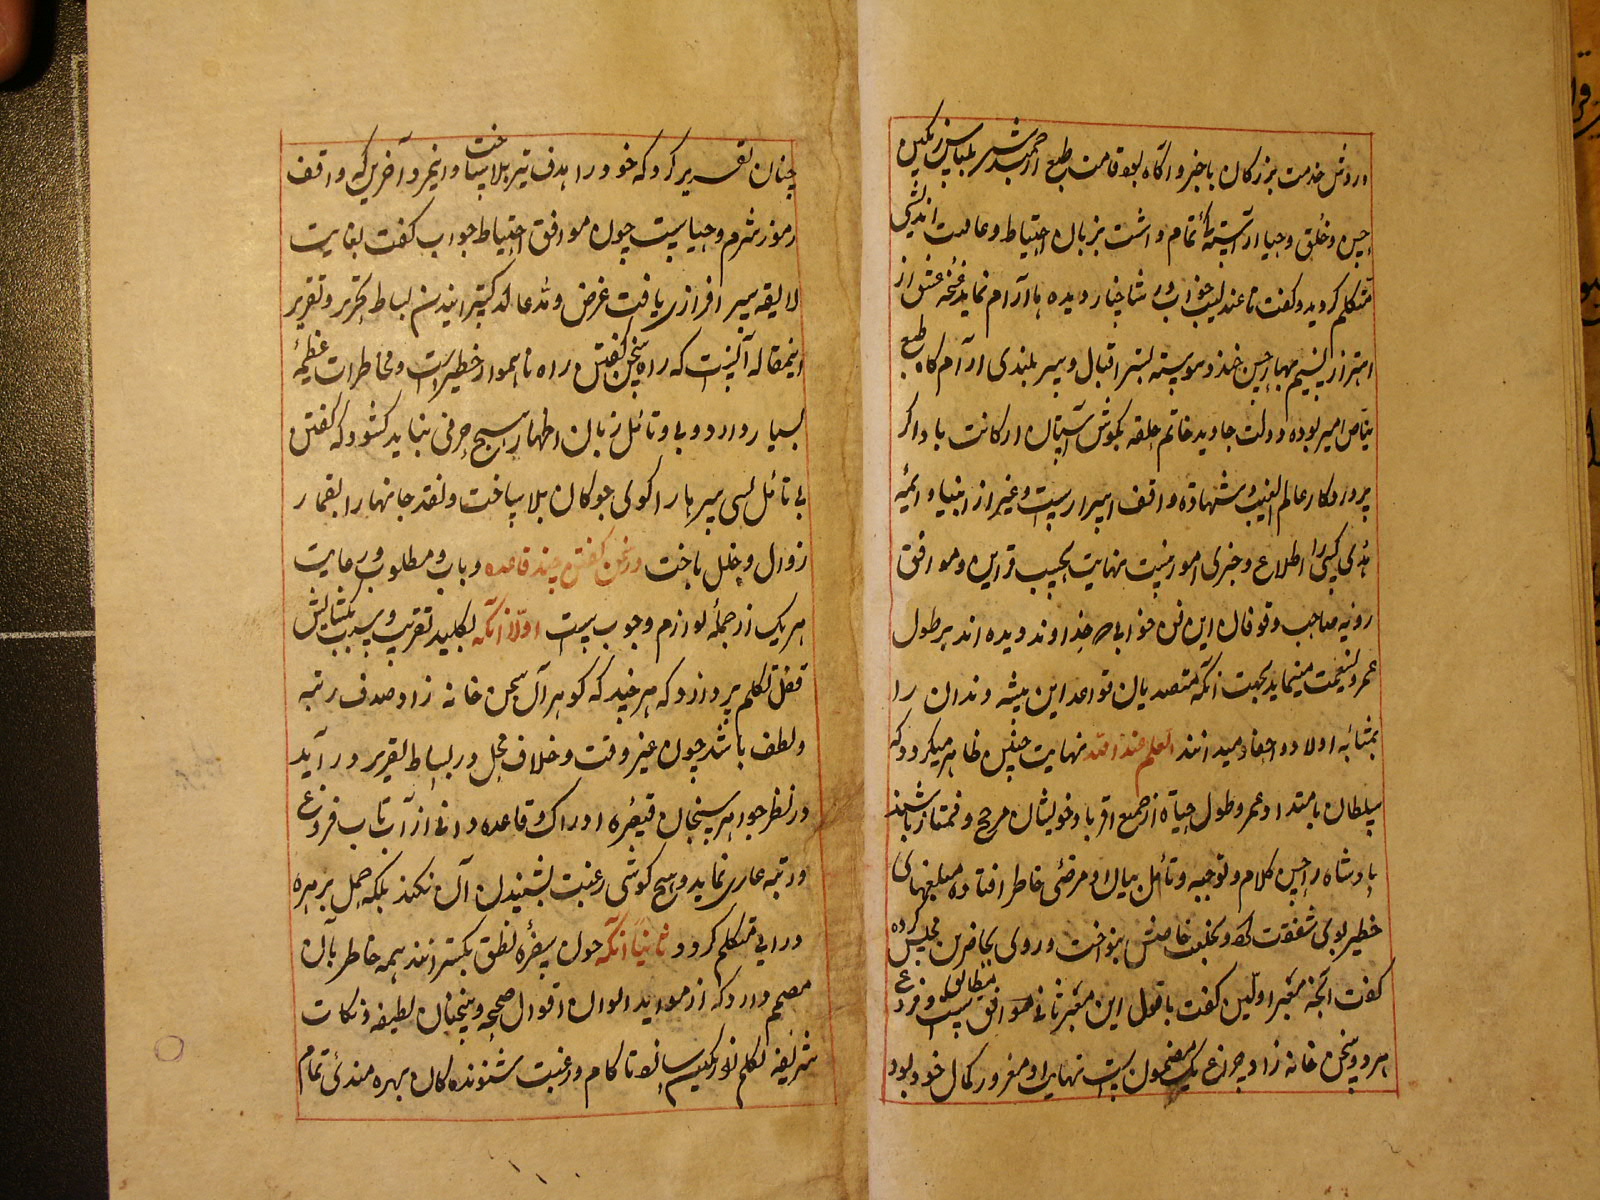 و روش خدمت بزرکان باخبر و آکاه بود قامت طبع ارجمندش بلباس رنکین
حسن و خلق و حیا آراستکی تمام داشت بزبان احتیاط و عاقبت اندیشی
متکلم کردید و کفت تا عندلیب خواب در شاخسار دیده ها آرام نماید غنچه عیش از
اهتزاز نسیم مهبا حسن خند و پیوسته بستر اقبال و سر بلندی آرام کاه طبع
امیر بوده دولت جاوید خاتم حلقه بکوش آستان ارکانت باد اکر
پروردکار عالم الغیب و شهادة واقف اسرار است و غیر از انبیا و ائمه
هدی کسی را اطلاع و خبری امور نیست نهایت بحسب قراین و موافق
رویه صاحب وقوفان این فن خوابی که خداوند دیده اند بر طول
عمر و نعمت مینماید بجهت آنکه متصدیان قواعد این پیشه دندان را
بمثابه اولاد و احفاد میدانند العلم عند الله نهایت چنین ظاهر میکردد که
سلطان بامتداد عمر و طول حیاة از جمیع اقربا و خویشان مرجح و ممتاز باشند
پادشاه را حسن کلام و توجیه و تأمل بیان او مرضی خاطر افتاده مبلغهای
خطیر بوی شفقت کرده و بخلعت خاصش بنواخت و روی بحاضرین مجلس کرده
کفت آنچه معبر اولین کفت باقول این معبر ثانی موافق مطابق است و فرع
هر دو سخن خانه زاد چراغ یک مضمون است نهایت او مغرور کمال خود بود
چنان تقریر کرد که خود را هدف تیر بلا ساخت و اینمرد آخرین که واقف
رموز شرم و حیاست چون موافق احتیاط جواب کفت بغایت
لایقه سر افرازی یافت غرض و مدعا از کسترانیدن بساط تحریر و تقریر
اینمقاله آنست که راه سخن کفتن راه ناهموار خطیر است و مخاطرات عظیمه
بسیار دارد و بی تأمل زبان اظهار بهیچ حرفی نباید کشود که کفتن
بی تأمل بسی سرها را کوی چوکان بلا ساخت و نقد جانها را بقمار
زوال و خلل باخت در سخن کفتن چند قاعده و باب مطلوب و رعایت
هر یک از جملهٔ لوازم وجوب است اولاً آنکه بکلید تقریب و سبب بکشایش
قفل تکلم پردازد که هر چند که کوهر آن سخن خانه زاد صدف رتبه
و لطف باشد چون غیر وقت و خلاف محل در بساط تقریر در آید
در نظر جواهر سنجان ادراک و قاعده دانی از آب تاب فروغ
و رتبه عاری نماید و هیچ کوشی رغبت بشنیدن آن نکند بلکه حمل بر هرزه
درایی متکلم کردد ثانیاً آنکه چون سفرهٔ نطق بکسترانند همه خاطر بآن
مصمم دارد که از مواید الوان اقوال صحیحه و سخنان لطیفه و نکات
شریفه تکلم نور یکسان تا کام و رغبت شنونده کان بهره مندی تمام